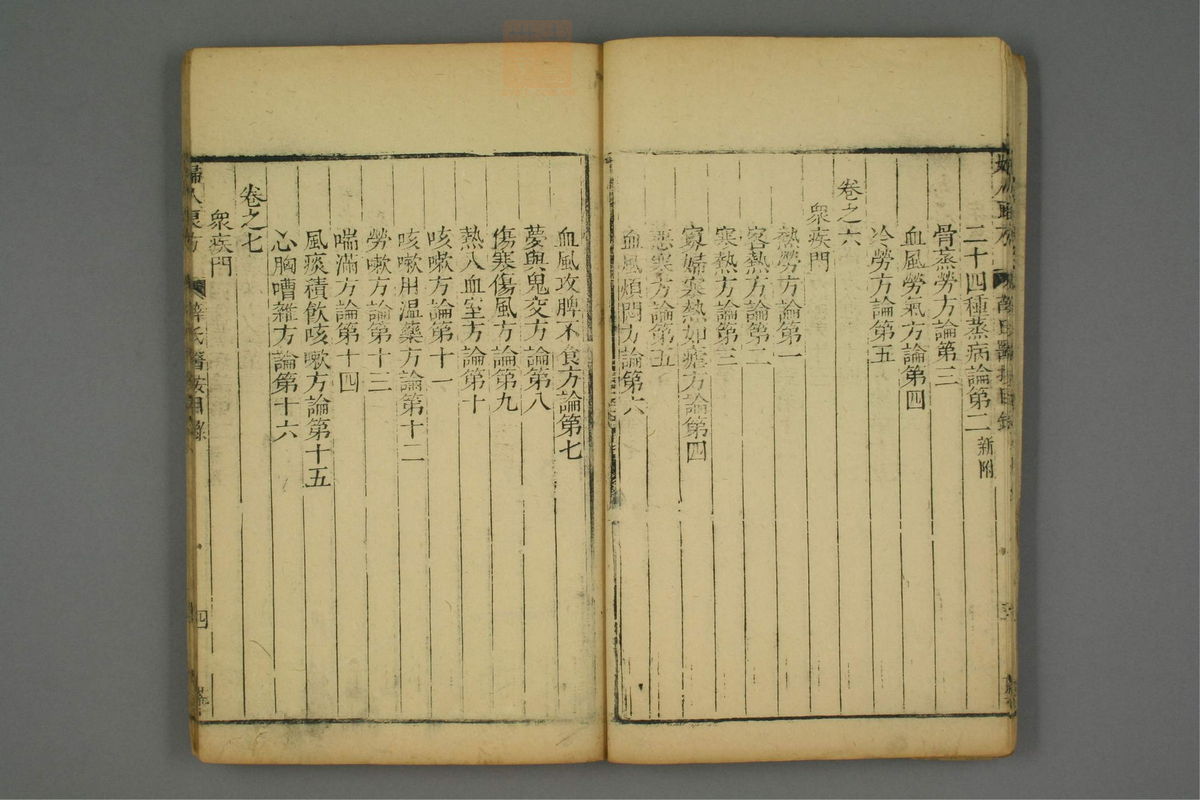 二十四種蒸病論第二新附
骨蒸勞方論第三
血風勞氣方論第四
冷勞方論第五
卷之六
衆疾門
熱勞方論第一
客熱方論第二
寒熱方論第三
寡婦寒熱如瘧方論第四
惡寒方論第五
血風煩悶方論第六
血風攻脾不食方論第七
夢與鬼交方論第八
傷寒傷風方論第九
熱入血室方論第十
咳嗽方論第十一
咳嗽用温藥方論第十二
勞嗽方論第十三
喘滿方論第十四
風痰積飲咳嗽方論第十五
心胸嘈雜方論第十六
卷之七
衆疾門
婦人良方 薛氏醫按目錄 四